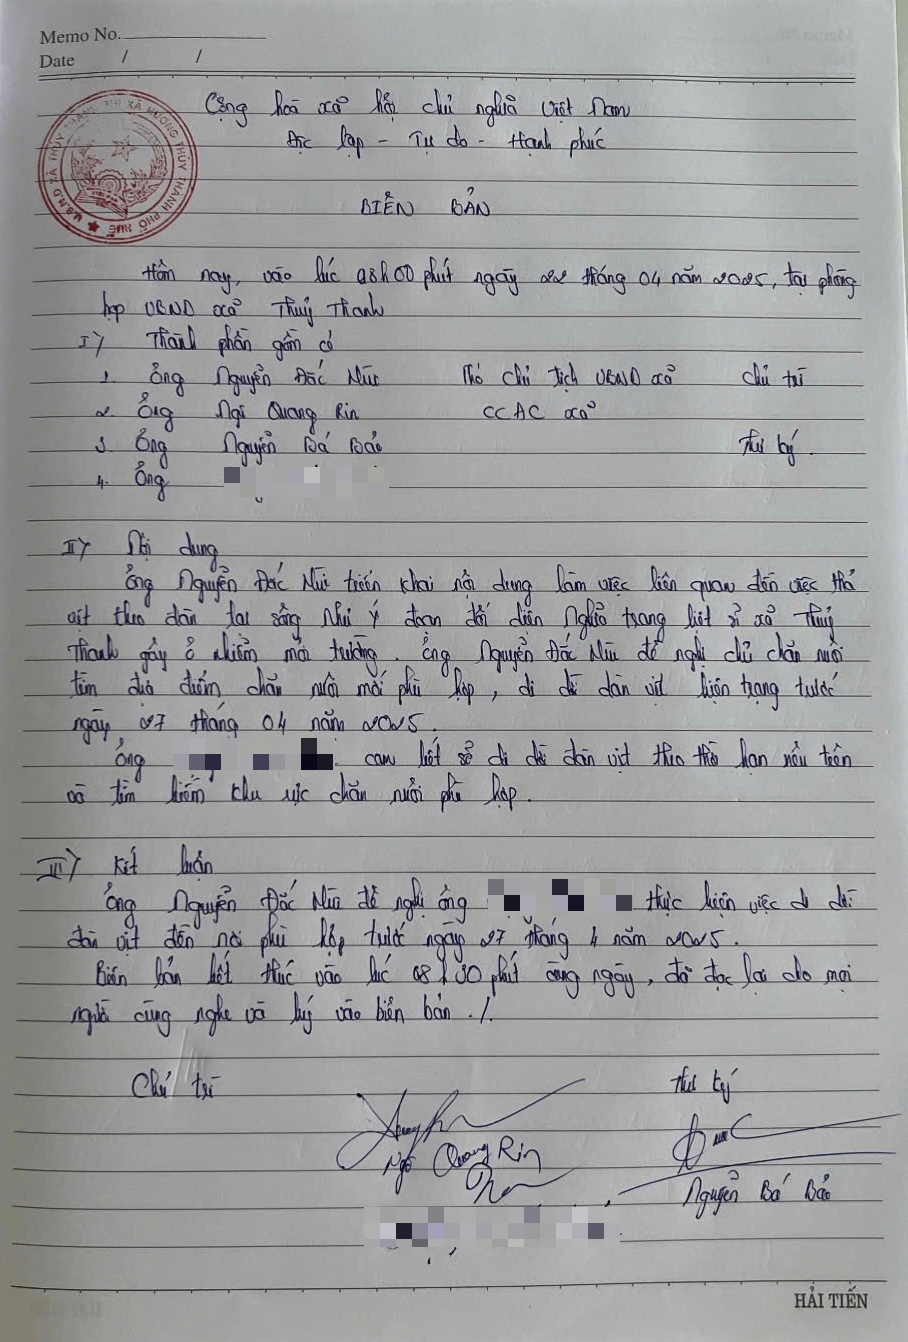 Memo No.
Date / /
Cộng hoà xã hội chủ nghĩa Việt Nam
Độc lập - Tự do - Hạnh phúc
U.B.N.D XÃ THỦY THANH THỊ XÃ HƯƠNG THỦY THÀNH PHỐ HUẾ
BIÊN BẢN
Hôm nay, vào lúc 08h00 phút ngày 22 tháng 04 năm 2025, tại phòng
họp UBND xã Thuỷ Thanh
I) Thành phần gồm có
1. Ông Nguyễn Đắc Phó chủ tịch UBND xã chủ trì
2. Ông Ngô Quang Rin CCAC xã
3. Ông Nguyễn Bá Bảo Thư ký.
4. Ông
II) Nội dung
Ông Nguyễn Đắc triển khai nội dung làm việc liên quan đến việc thả
vịt theo đàn tại sông Như Ý đoạn đối diện Nghĩa trang liệt sĩ xã Thủy
Thanh gây ô nhiễm môi trường. Ông Nguyễn Đắc đề nghị chủ chăn nuôi
tìm địa điểm chăn nuôi mới phù hợp, di dời đàn vịt hiện trạng trước
ngày 27 tháng 04 năm 2025.
Ông cam kết sẽ di dời đàn vịt theo thời hạn nêu trên
và tìm kiếm khu vực chăn nuôi phù hợp.
III) Kết luận
Ông Nguyễn Đắc đề nghị ông thực hiện việc di dời
đàn vịt đến nơi phù hợp trước ngày 27 tháng 4 năm 2025.
Biên bản kết thúc vào lúc 08h30 phút cùng ngày, đã đọc lại cho mọi
người cùng nghe và ký vào biên bản ./.
Chủ trì Thư ký
Ngô Quang Rin
Nguyễn Bá Bảo
HẢI TIẾN